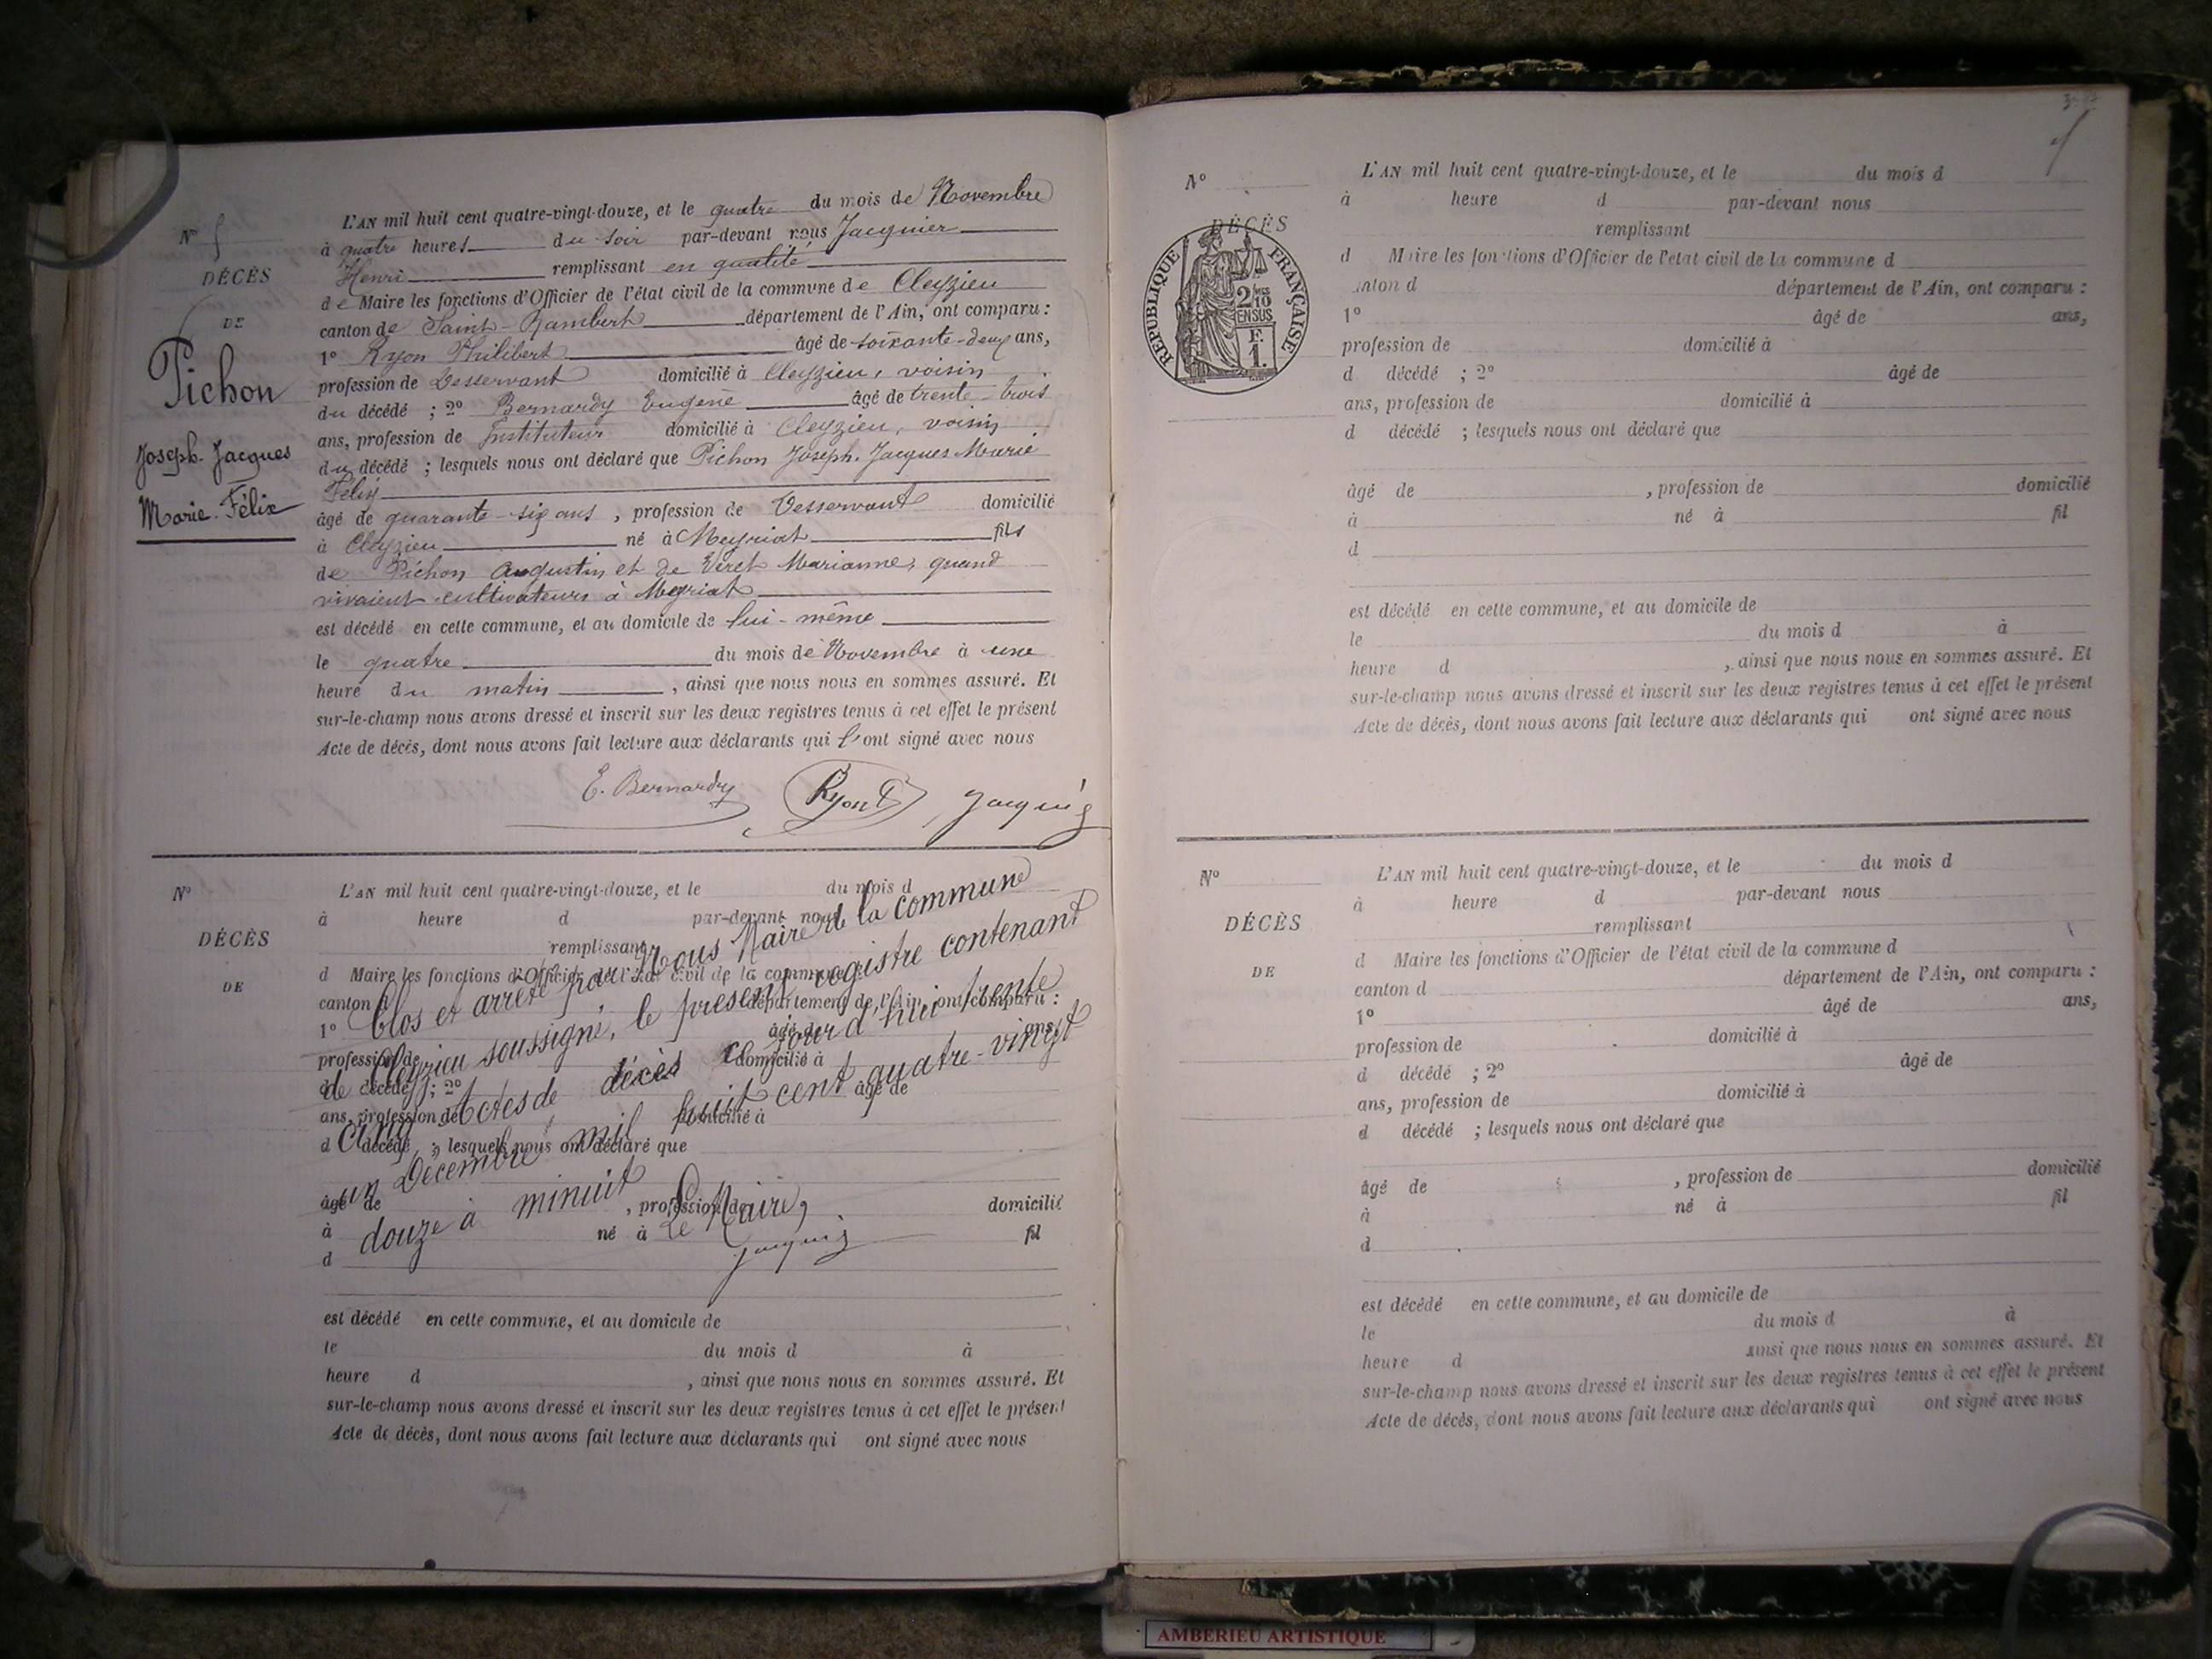 N° 5
DÉCÈS
DE
Pichon
Joseph-Jacques
Marie-Félix
L'AN mil huit cent quatre-vingt-douze, et le quatre du mois de Novembre
à quatre heures du soir par-devant nous Jacquier
Henri remplissant en qualité
de Maire les fonctions d'Officier de l'état civil de la commune de Cleyzieu
canton de Saint-Rambert département de l'Ain, ont comparu :
1° Ryon Philibert âgé de soixante-deux ans,
profession de Desservant domicilié à Cleyzieu, voisin
du décédé ; 2° Bernardy Eugene âgé de trente-trois
ans, profession de Instituteur domicilié à Cleyzieu, voisin
du décédé ; lesquels nous ont déclaré que Pichon Joseph-Jacques Marie
Félix
âgé de quarante-six ans , profession de Desservant domicilié
à Cleyzieu né à Meyriat fils
de Pichon Augustin et de Véret Marianne, quand
vivaient cultivateurs à Meyriat
est décédé en cette commune, et au domicile de lui-même
le quatre du mois de Novembre à une
heure du matin , ainsi que nous nous en sommes assuré. Et
sur-le-champ nous avons dressé et inscrit sur les deux registres tenus à cet effet le présent
Acte de décès, dont nous avons fait lecture aux déclarants qui l'ont signé avec nous
E. Bernardy Ryon
N°
DÉCÈS
DE
L'AN mil huit cent quatre-vingt-douze, et le du mois d
à heure d par-devant nous
remplissant
d Maire les fonctions d'Officier de l'état civil de la commune d
canton d département de l'Ain, ont comparu :
1° âgé de ans,
profession de domicilié à
d décédé ; 2° âgé de
ans, profession de domicilié à
d décédé ; lesquels nous ont déclaré que
âgé de , profession de domicilié
à né à fil
d
Clos et arrêté par Nous Maire de la commune
de Cleyzieu soussigné, le présent registre contenant
cinq Actes de décès ce jour d'hui trente
un Décembre mil huit cent quatre-vingt
douze à minuit
Le Maire,
est décédé en cette commune, et au domicile de
le du mois d à
heure d , ainsi que nous nous en sommes assuré. Et
sur-le-champ nous avons dressé et inscrit sur les deux registres tenus à cet effet le présent
Acte de décès, dont nous avons fait lecture aux déclarants qui ont signé avec nous
N°
DÉCÈS
RÉPUBLIQUE FRANÇAISE
2/10 EN SUS
F. 1.
L'AN mil huit cent quatre-vingt-douze, et le du mois d
à heure d par-devant nous
remplissant
d Maire les fonctions d'Officier de l'état civil de la commune d
anton d département de l'Ain, ont comparu :
1° âgé de ans,
profession de domicilié à
d décédé ; 2° âgé de
ans, profession de domicilié à
d décédé ; lesquels nous ont déclaré que
âgé de , profession de domicilié
à né à fil
d
est décédé en cette commune, et au domicile de
le du mois d à
heure d , ainsi que nous nous en sommes assuré. Et
sur-le-champ nous avons dressé et inscrit sur les deux registres tenus à cet effet le présent
Acte de décès, dont nous avons fait lecture aux déclarants qui ont signé avec nous
N°
DÉCÈS
DE
L'AN mil huit cent quatre-vingt-douze, et le du mois d
à heure d par-devant nous
remplissant
d Maire les fonctions d'Officier de l'état civil de la commune d
canton d département de l'Ain, ont comparu :
1° âgé de ans,
profession de domicilié à
d décédé ; 2° âgé de
ans, profession de domicilié à
d décédé ; lesquels nous ont déclaré que
âgé de , profession de domicilié
à né à fil
d
est décédé en cette commune, et au domicile de
le du mois d à
heure d ainsi que nous nous en sommes assuré. Et
sur-le-champ nous avons dressé et inscrit sur les deux registres tenus à cet effet le présent
Acte de décès, dont nous avons fait lecture aux déclarants qui ont signé avec nous
AMBERIEU ARTISTIQUE